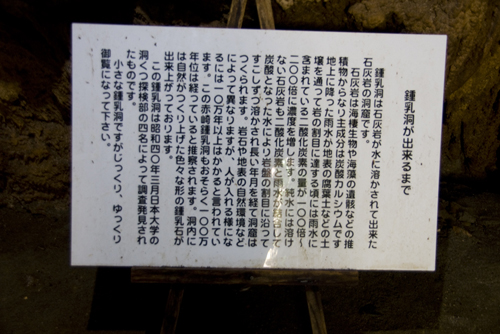 鍾乳洞が出来るまで
鍾乳洞は石灰岩が水に溶かされて出来た
石灰岩の洞窟です。
石灰岩は海棲生物や海藻の遺骸などの堆
積物からなり主成分は炭酸カルシウムです
地上に降った雨水が地表の腐葉土などの土
壌を通って岩の割目に達する頃には雨水に
含まれている二酸化炭素の量が一〇〇倍〜
二〇〇倍に濃度を増します。純水には溶け
ない石灰岩も二酸化炭素と雨水が結合して
炭酸となり水により岩盤の割目に沿って
すこしずつ溶かされ長い年月を経て洞窟は
つくられます。岩石や地表の自然環境など
によって異なりますが、人が入れる様にな
るには一〇万年以上はかかると言われてい
ます。この赤崎鍾乳洞もおそらく一〇〇万
年位は経っていると推察されます。洞内に
は自然がつくり上げた色々な形の鍾乳石が
出来上がっております。
この鍾乳洞は昭和四〇年三月日本大学の
洞くつ探検部の四名によって調査発見され
たものです。
小さな鍾乳洞ですがじっくり、ゆっくり
御覧になって下さい。